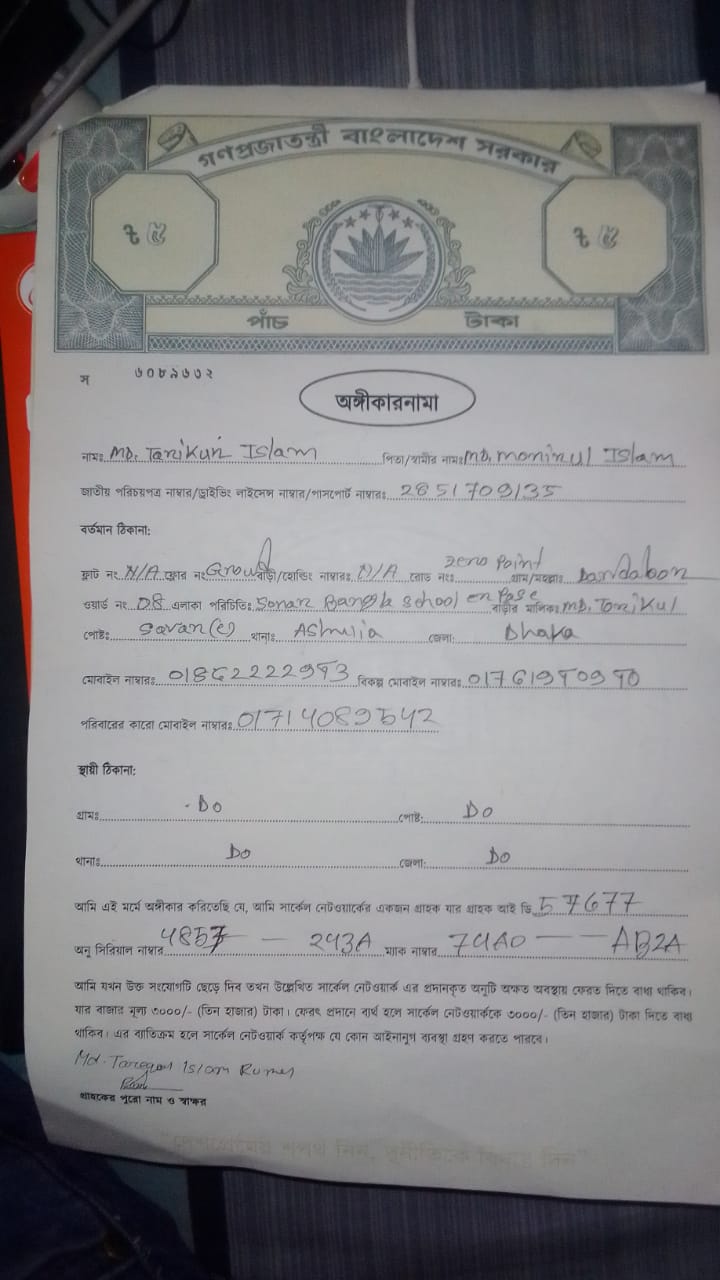 গণপ্রজাতন্ত্রী বাংলাদেশ সরকার
৳ ৫ ৳ ৫
পাঁচ টাকা
স ৬০৮৯৬৩২
অঙ্গীকারনামা
নামঃ MD. Tarikul Islam পিতা/স্বামীর নামঃ MD. Monirul Islam
জাতীয় পরিচয়পত্র নাম্বার/ড্রাইভিং লাইসেন্স নাম্বার/পাসপোর্ট নাম্বারঃ 2851709135
বর্তমান ঠিকানা:
ফ্লাট নং N/A ফ্লোর নং বাড়ী/হোল্ডিং নাম্বারঃ N/A রোড নংঃ Zero Point গ্রাম/মহল্লাঃ
ওয়ার্ড নং 08 এলাকা পরিচিতিঃ Sonar Bangla School বাড়ীর মালিকঃ MD. Torikul
পোষ্টঃ Savar থানাঃ Ashulia জেলা: Dhaka
মোবাইল নাম্বারঃ বিকল্প মোবাইল নাম্বারঃ
পরিবারের কারো মোবাইল নাম্বারঃ 01714089542
স্থায়ী ঠিকানা:
গ্রামঃ Do পোষ্ট: Do
থানাঃ Do জেলা: Do
আমি এই মর্মে অঙ্গীকার করিতেছি যে, আমি সার্কেল নেটওয়ার্কের একজন গ্রাহক যার গ্রাহক আই ডি 57677
অনু সিরিয়াল নাম্বার 4857 — 293A ম্যাক নাম্বার 74A0 — — AB2A
আমি যখন উক্ত সংযোগটি ছেড়ে দিব তখন উল্লেখিত সার্কেল নেটওয়ার্ক এর প্রদানকৃত অনুটি অক্ষত অবস্থায় ফেরত দিতে বাধ্য থাকিব।
যার বাজার মূল্য ৩০০০/- (তিন হাজার) টাকা। ফেরৎ প্রদানে ব্যর্থ হলে সার্কেল নেটওয়ার্ককে ৩০০০/- (তিন হাজার) টাকা দিতে বাধ্য
থাকিব। এর ব্যতিক্রম হলে সার্কেল নেটওয়ার্ক কর্তৃপক্ষ যে কোন আইনানুগ ব্যবস্থা গ্রহণ করতে পারবে।
Md. Islam
গ্রাহকের পুরো নাম ও স্বাক্ষর